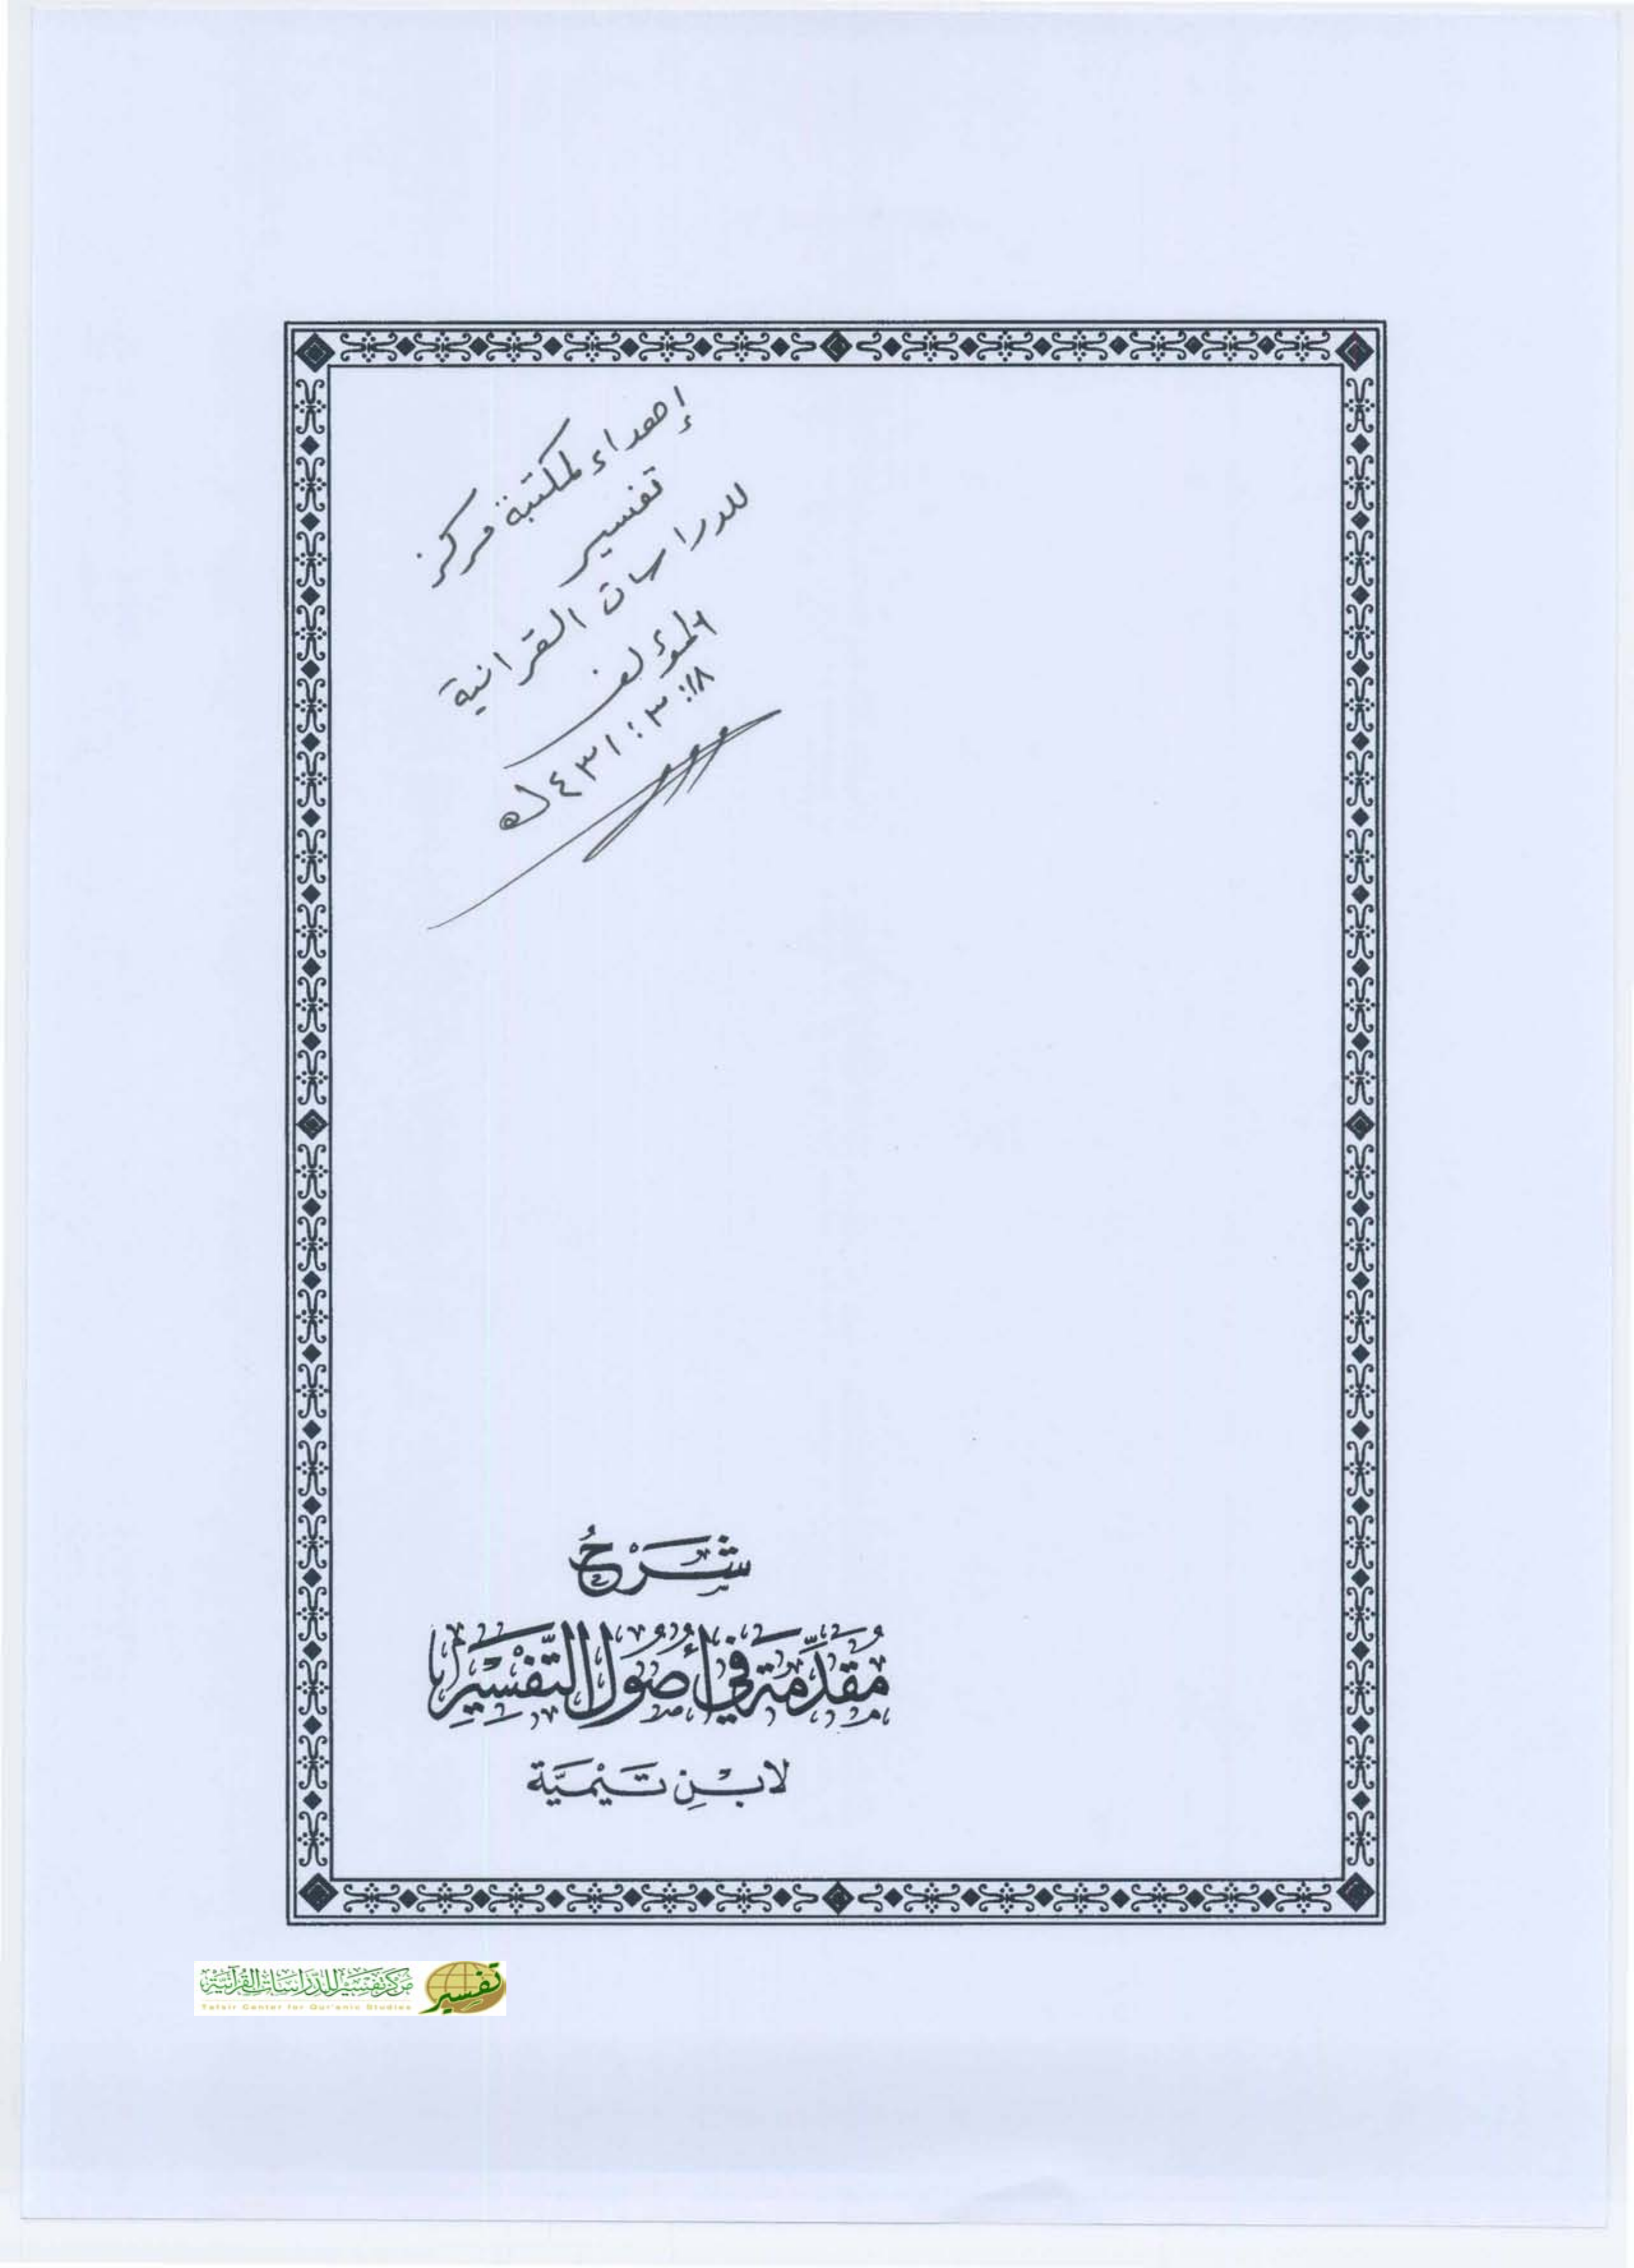 إهداء لمكتبة مركز
تفسير
للدراسات القرآنية
المؤلف
١٨: ٣: ١٤٣١هـ
شَرْحُ
مُقَدِّمَةٍ فِي أُصُولِ التَّفْسِيرِ
لابْنِ تَيْمِيَّة
مركز تفسير للدراسات القرآنية
Tafsir Center for Qur'anic Studies
تفسير